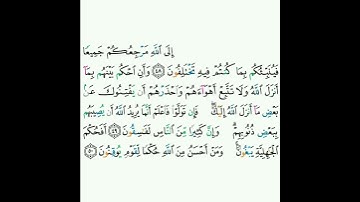 إِلَى اللَّهِ مَرْجِعُكُمْ جَمِيعًا
فَيُنَبِّئُكُم بِمَا كُنتُمْ فِيهِ تَخْتَلِفُونَ ﴿٤٨﴾ وَأَنِ احْكُم بَيْنَهُم بِمَا
أَنزَلَ اللَّهُ وَلَا تَتَّبِعْ أَهْوَاءَهُمْ وَاحْذَرْهُمْ أَن يَفْتِنُوكَ عَنْ
بَعْضِ مَا أَنزَلَ اللَّهُ إِلَيْكَ ۖ فَإِن تَوَلَّوْا فَاعْلَمْ أَنَّمَا يُرِيدُ اللَّهُ أَن يُصِيبَهُم
بِبَعْضِ ذُنُوبِهِمْ ۗ وَإِنَّ كَثِيرًا مِّنَ النَّاسِ لَفَاسِقُونَ ﴿٤٩﴾ أَفَحُكْمَ
الْجَاهِلِيَّةِ يَبْغُونَ ۚ وَمَنْ أَحْسَنُ مِنَ اللَّهِ حُكْمًا لِّقَوْمٍ يُوقِنُونَ ﴿٥٠﴾